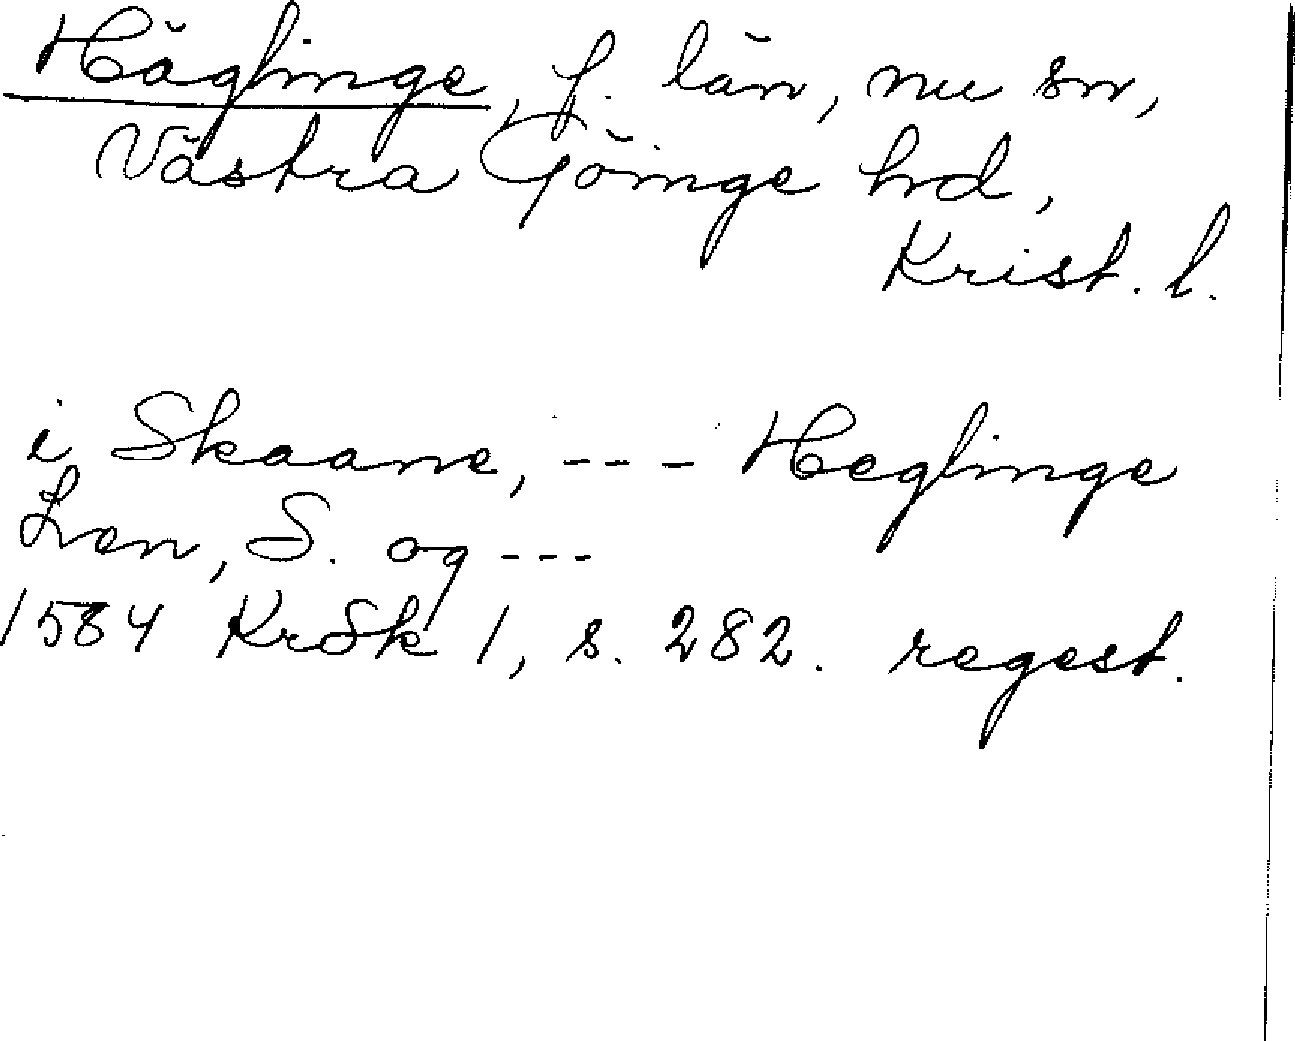 Häglinge, f. län, nu sn,
Västra Göinge hd,
Krist. l.
i Skaane, --- Heglinge
Len, S. og ---
1584 KrSk 1, s. 282. regest.